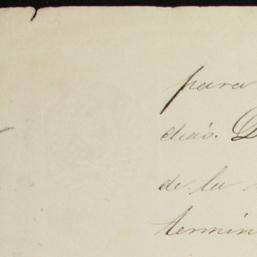 para
dias. D
de la
termin